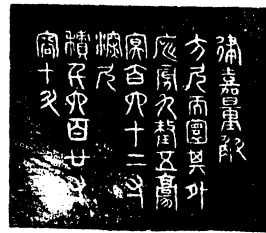 律嘉量斛
方尺而圜其外
庣旁九氂五豪
冥百六十二寸
深尺
積千六百廿寸
容十斗